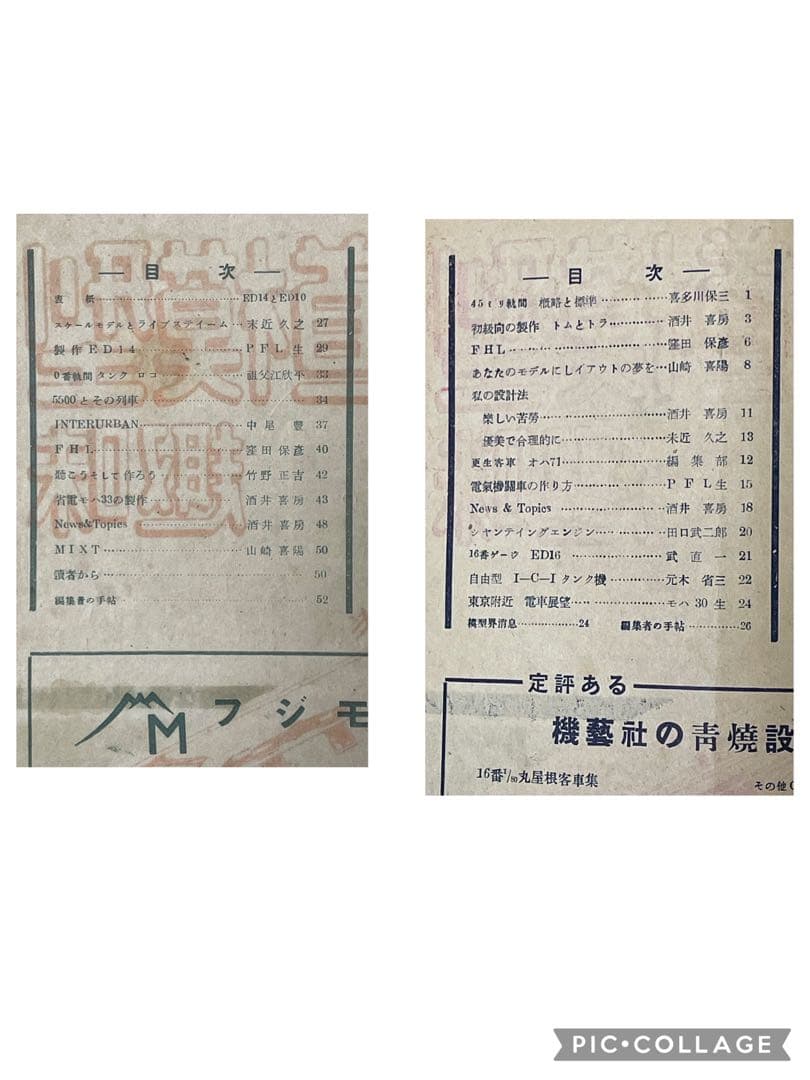 — 目 次 —
表 紙 ED14とED10
スケールモデルとライブスティーム 末近久之 27
製作ED14 PFL生 29
0番軌間 タンク ロコ 祖父江欣平 33
5500とその列車 34
INTERURBAN 中尾 豊 37
FHL 窪田保彦 40
聴こうそして作ろう 竹野正吉 42
省電モハ33の製作 酒井喜房 43
News&Topics 酒井喜房 48
MIXT 山崎喜陽 50
讀者から 50
編集者の手帖 52
フジモ
— 目 次 —
45ミリ軌間 概略と標準 喜多川保三 1
初級向の製作 トムとトラ 酒井喜房 3
FHL 窪田保彦 6
あなたのモデルにレイアウトの夢を 山崎喜陽 8
私の設計法
楽しい苦勞 酒井喜房 11
優美で合理的に 末近久之 13
更生客車 オハ71 編集部 12
電氣機関車の作り方 PFL生 15
News & Topics 酒井喜房 18
シャンテイングエンジン 田口武二郎 20
16番ゲージ ED16 武直一 21
自由型 1—C—1 タンク機 元木省三 22
東京附近 電車展望 モハ30生 24
模型界消息 24 編集者の手帖 26
定評ある
機藝社の青焼設
16番1/80丸屋根客車集
その他
PIC•COLLAGE